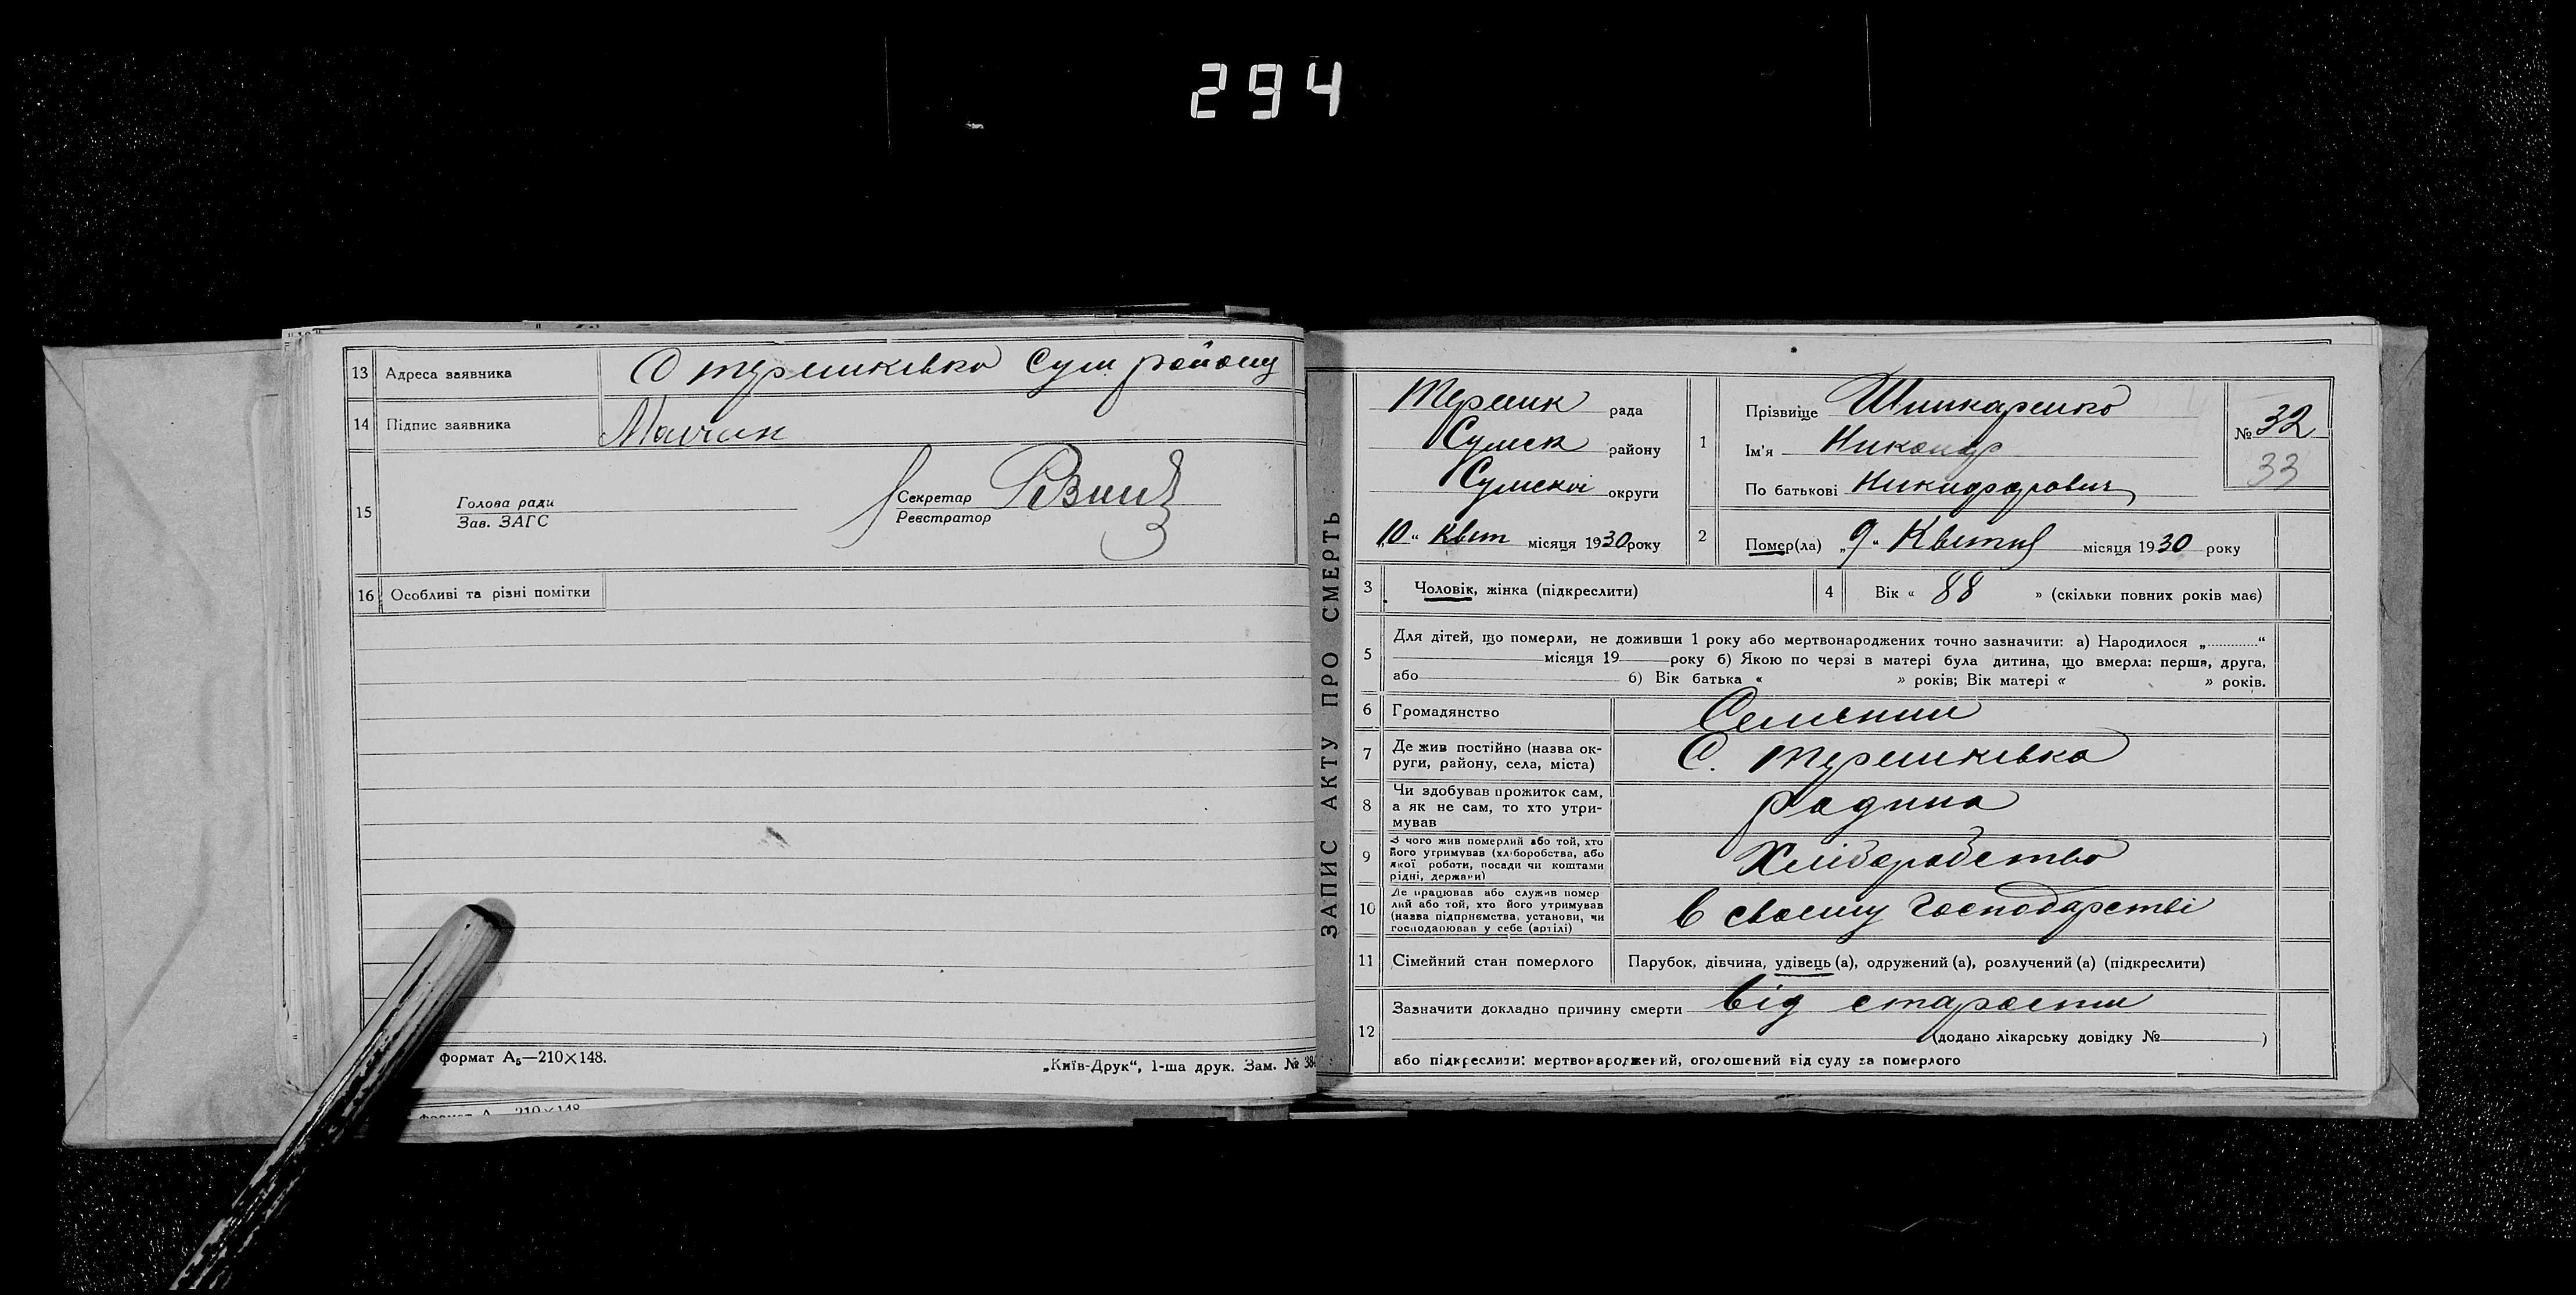 294
13 Адреса заявника С терешківка Сум району
14 Підпис заявника
15 Голова ради
Зав. ЗАГС
Секретар
Реєстратор
16 Особливі та різні помітки
формат А5—210×148.
„Київ-Друк“, 1-ша друк. Зам. № 38
210×148
ЗАПИС АКТУ ПРО СМЕРТЬ
Терешк рада
Сумск району
Сумскої округи
„10“ Квіт місяця 1930 року
1 Прізвище Шинкаренко
Ім'я Никанор
По батькові Никифорович
№ 32
33
2 Помер(ла) „9“ Квітня місяця 1930 року
3 Чоловік, жінка (підкреслити)
4 Вік « 88 » (скільки повних років має)
5 Для дітей, що померли, не доживши 1 року або мертвонароджених точно зазначити: а) Народилося „..........“
місяця 19 року б) Якою по черзі в матері була дитина, що вмерла: перша, друга,
або б) Вік батька « » років; Вік матері « » років.
6 Громадянство Селянин
7 Де жив постійно (назва ок-
руги, району, села, міста) С. терешківка
8 Чи здобував прожиток сам,
а як не сам, то хто утри-
мував родина
9 З чого жив померлий або той, хто
його утримував (хліборобства, або
якої роботи, посади чи коштами
рідні, держави) Хліборобство
10 Де працював або служив помер
лий або той, хто його утримував
(назва підприємства, установи, чи
господарював у себе (артілі) в своєму господарстві
11 Сімейний стан померлого Парубок, дівчина, удівець (а), одружений (а), розлучений (а) (підкреслити)
12 Зазначити докладно причину смерти від старости
(додано лікарську довідку № )
або підкреслити: мертвонароджений, оголошений від суду за померлого